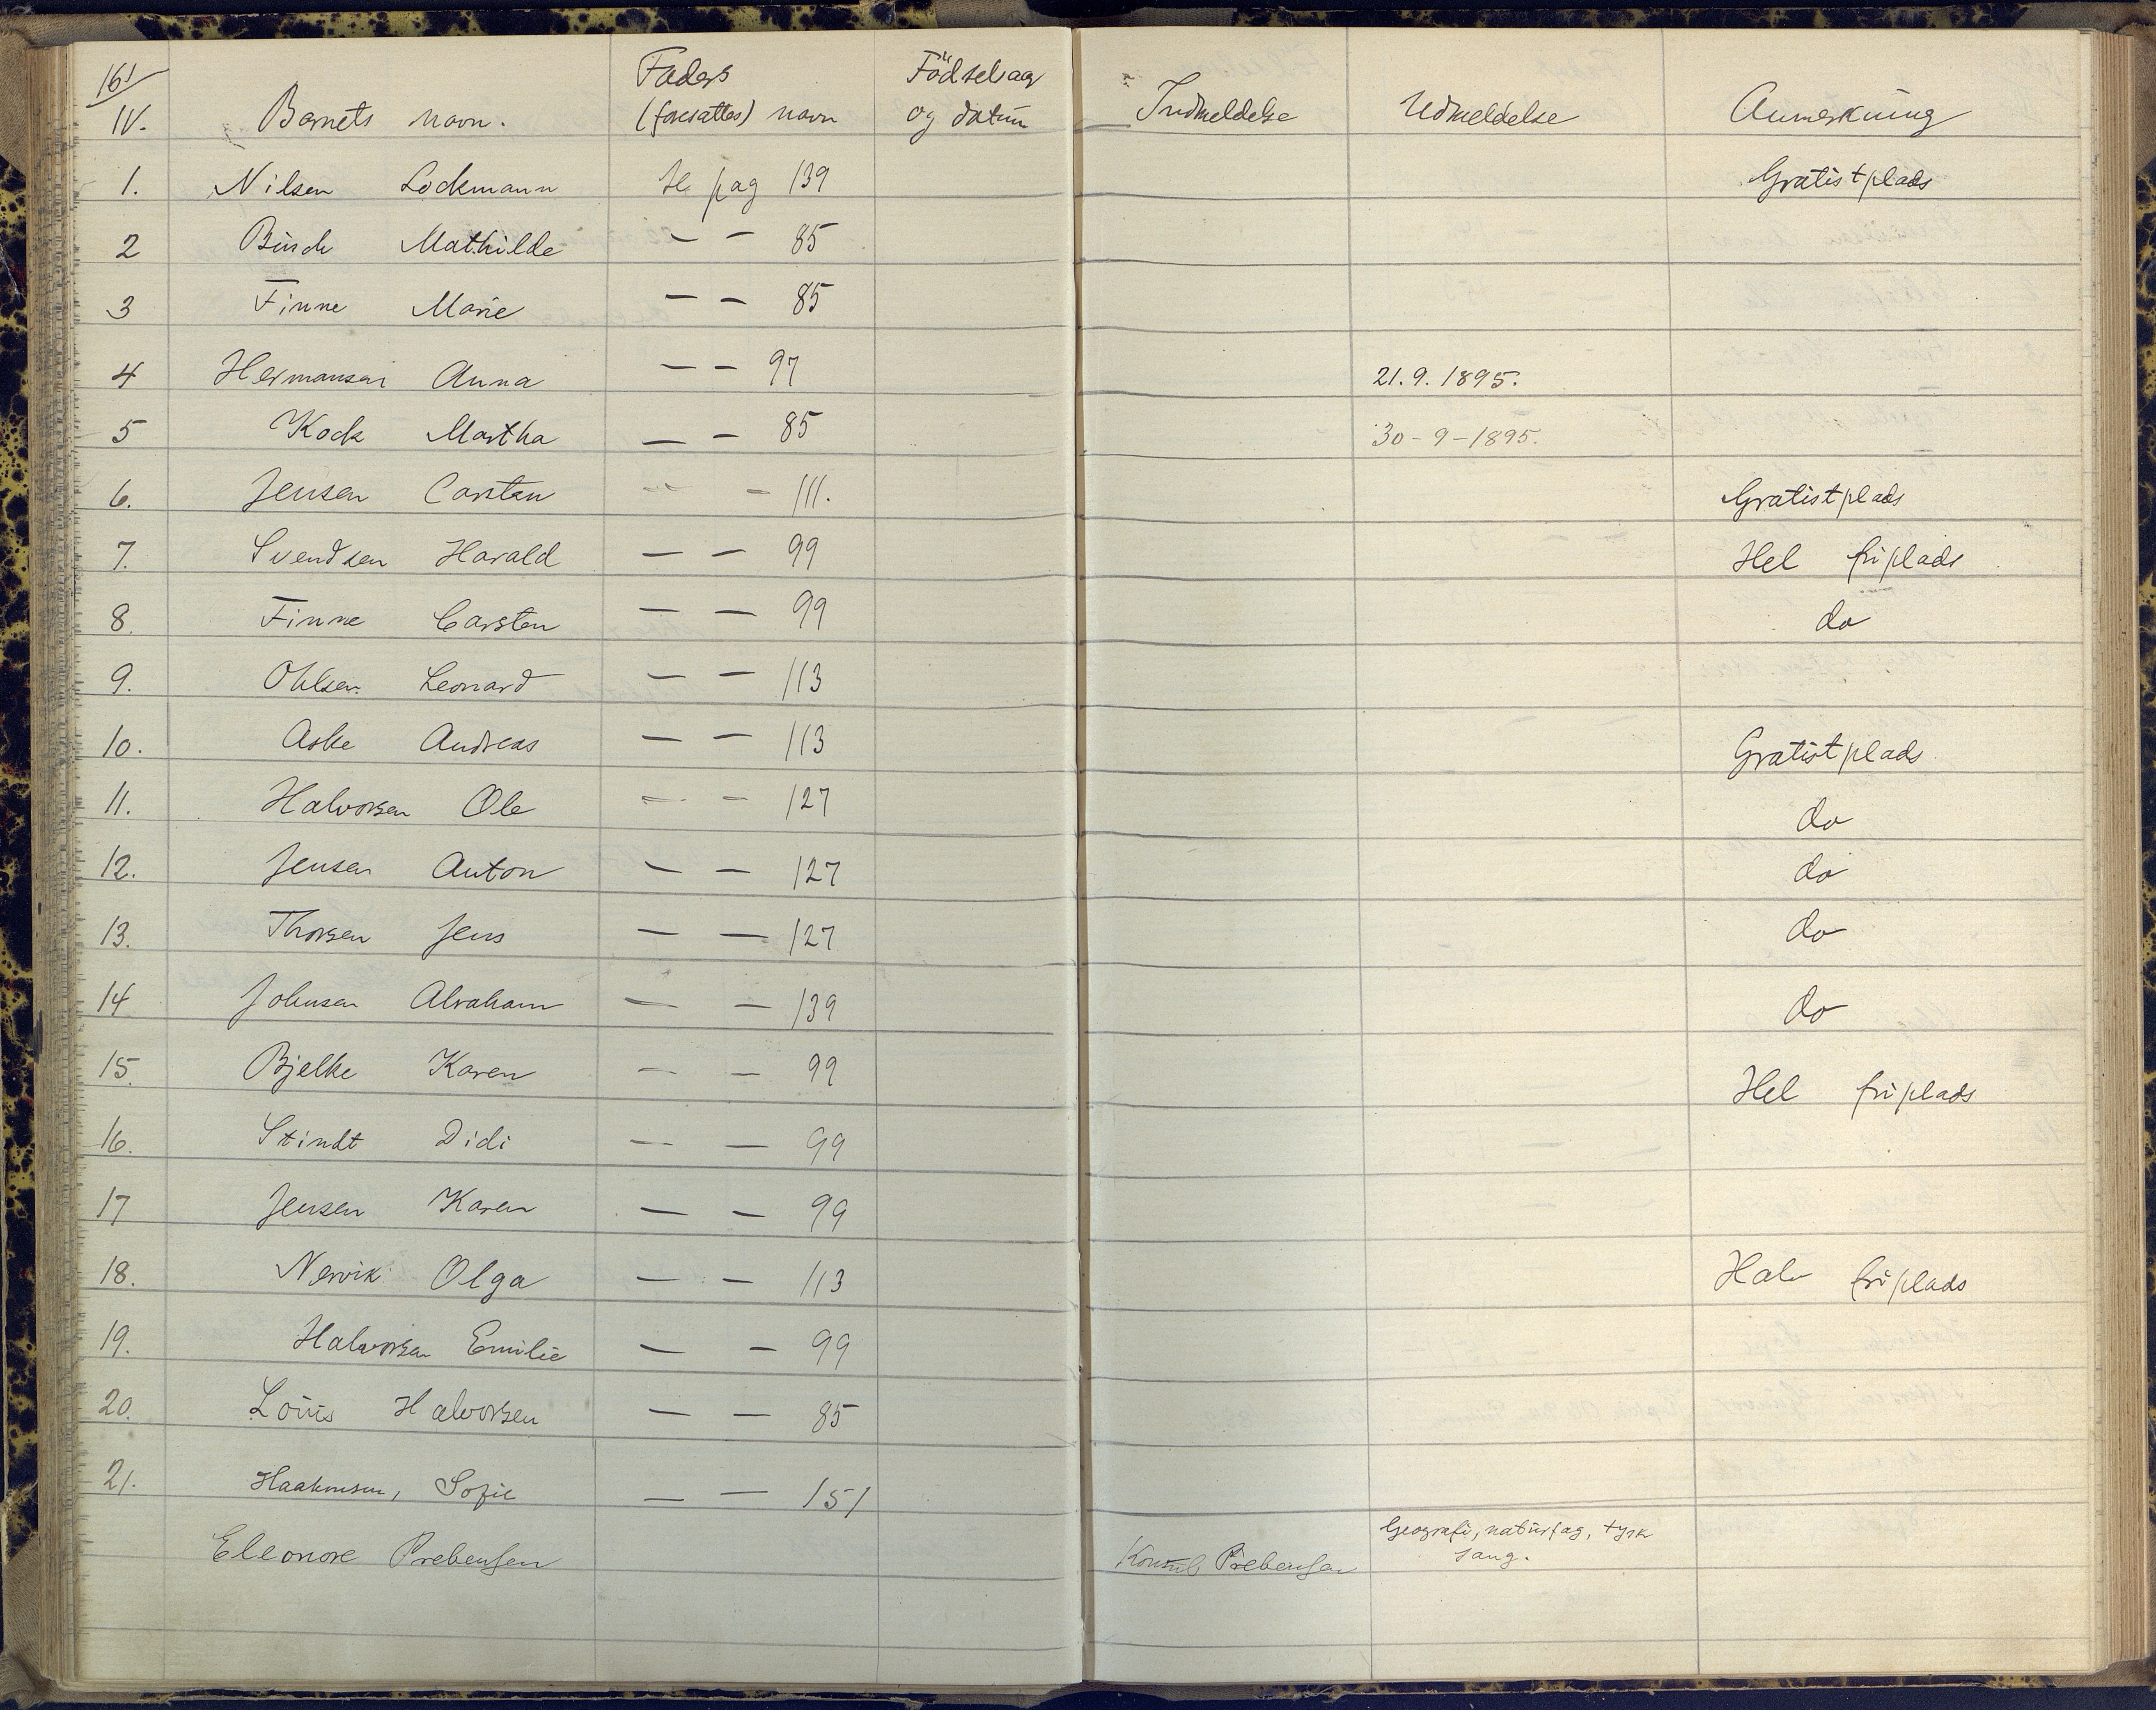 161
IV. Barnets navn. Faders (foresattes) navn Födselsaar og datum Indmeldelse Udmeldelse Anmerkning
1. Nilsen Lockmann se pag 139 Gratistplads
2 Binch Mathilde — — 85
3 Finne Marie — — 85
4 Hermansen Anna — — 97 21.9.1895.
5 Kock Martha — — 85 30-9-1895.
6. Jensen Carsten — — 111. Gratistplads
7. Svendsen Harald — — 99 Hel friplads
8. Finne Carsten — — 99 do
9. Ohlsen Leonard — — 113
10. Aske Andreas — — 113 Gratistplads
11. Halvorsen Ole — — 127 do
12. Jensen Anton — — 127 do
13. Thorsen Jens — — 127 do
14 Johnsen Abraham — — 139 do
15. Bjelke Karen — — 99 Hel friplads
16. Stindt Didi — — 99
17 Jensen Karen — — 99
18. Nervik Olga — — 113 Halv friplads
19. Halvorsen Emilie — — 99
20. Louis Halvorsen — — 85
21. Haakonsen, Sofie — — 151
Eleonore Prebensen Konsul Prebensen Geografi, naturfag, tysk
sang.